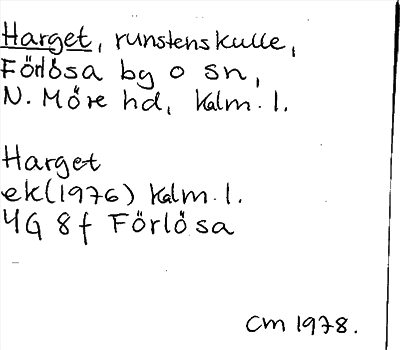 Harget, runstenskulle,
Förlösa by o sn,
N. Möre hd, Kalm. l.
Harget
ek(1976) Kalm. l.
4G 8f Förlösa
CM 1978.